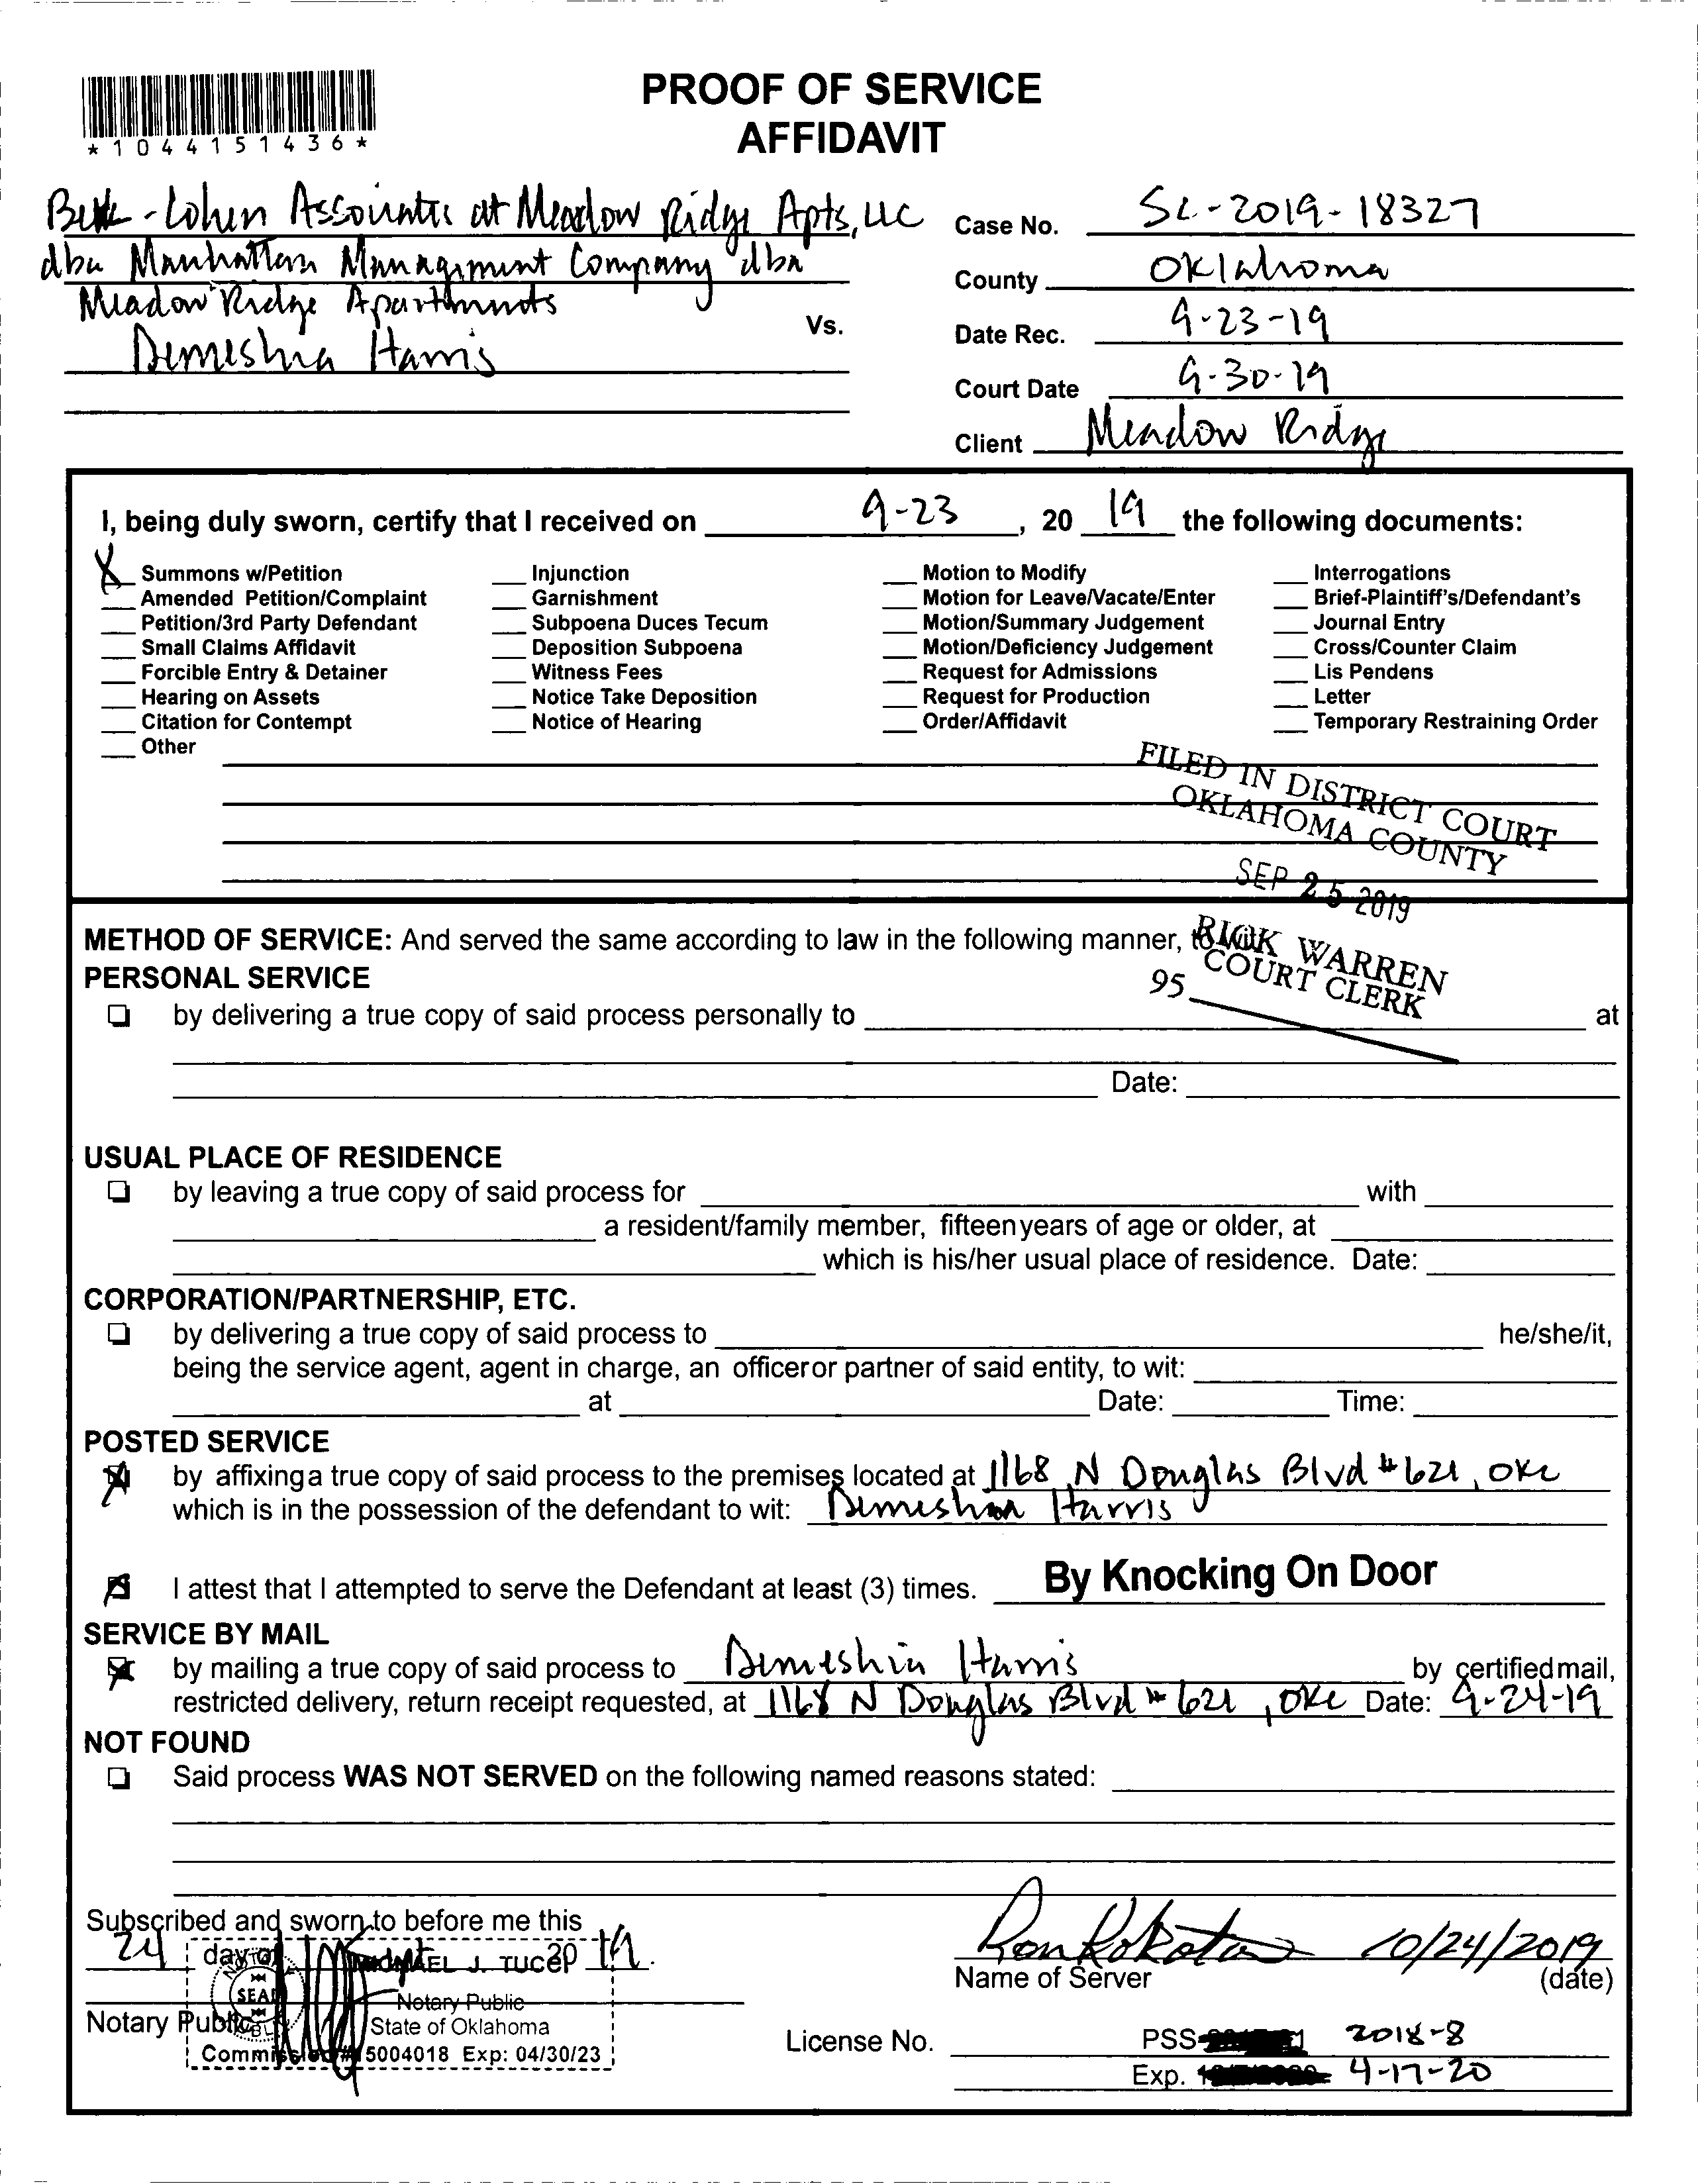 PROOF OF SERVICE
AFFIDAVIT
*1044151436*
Berk-Cohen Associates at Meadow Ridge Apts, LLC
dba Manhattan Management Company dba
Meadow Ridge Apartments
Vs.
Demeshia Harris
Case No. SC-2019-18327
County Oklahoma
Date Rec. 9-23-19
Court Date 9-30-19
Client Meadow Ridge
I, being duly sworn, certify that I received on 9-23, 20 19 the following documents:
X Summons w/Petition
Amended Petition/Complaint
Petition/3rd Party Defendant
Small Claims Affidavit
Forcible Entry & Detainer
Hearing on Assets
Citation for Contempt
Other
Injunction
Garnishment
Subpoena Duces Tecum
Deposition Subpoena
Witness Fees
Notice Take Deposition
Notice of Hearing
Motion to Modify
Motion for Leave/Vacate/Enter
Motion/Summary Judgement
Motion/Deficiency Judgement
Request for Admissions
Request for Production
Order/Affidavit
Interrogations
Brief-Plaintiff's/Defendant's
Journal Entry
Cross/Counter Claim
Lis Pendens
Letter
Temporary Restraining Order
FILED IN DISTRICT COURT
OKLAHOMA COUNTY
SEP 25 2019
RICK WARREN
COURT CLERK
95
METHOD OF SERVICE: And served the same according to law in the following manner, to wit:
PERSONAL SERVICE
by delivering a true copy of said process personally to at
Date:
USUAL PLACE OF RESIDENCE
by leaving a true copy of said process for with
a resident/family member, fifteen years of age or older, at
which is his/her usual place of residence. Date:
CORPORATION/PARTNERSHIP, ETC.
by delivering a true copy of said process to he/she/it,
being the service agent, agent in charge, an officer or partner of said entity, to wit:
at Date: Time:
POSTED SERVICE
X by affixing a true copy of said process to the premises located at 1168 N Douglas Blvd #621, OKC
which is in the possession of the defendant to wit: Demeshia Harris
X I attest that I attempted to serve the Defendant at least (3) times. By Knocking On Door
SERVICE BY MAIL
X by mailing a true copy of said process to Demeshia Harris by certified mail,
restricted delivery, return receipt requested, at 1168 N Douglas Blvd #621, OKC Date: 9-24-19
NOT FOUND
Said process WAS NOT SERVED on the following named reasons stated:
Subscribed and sworn to before me this
24 day of 20 19.
Notary Public
MICHAEL J. TUCEP
SEAL
Notary Public
State of Oklahoma
Commission # 15004018 Exp: 04/30/23
10/24/2019
Name of Server (date)
License No. PSS- 2018-8
Exp. 4-17-20